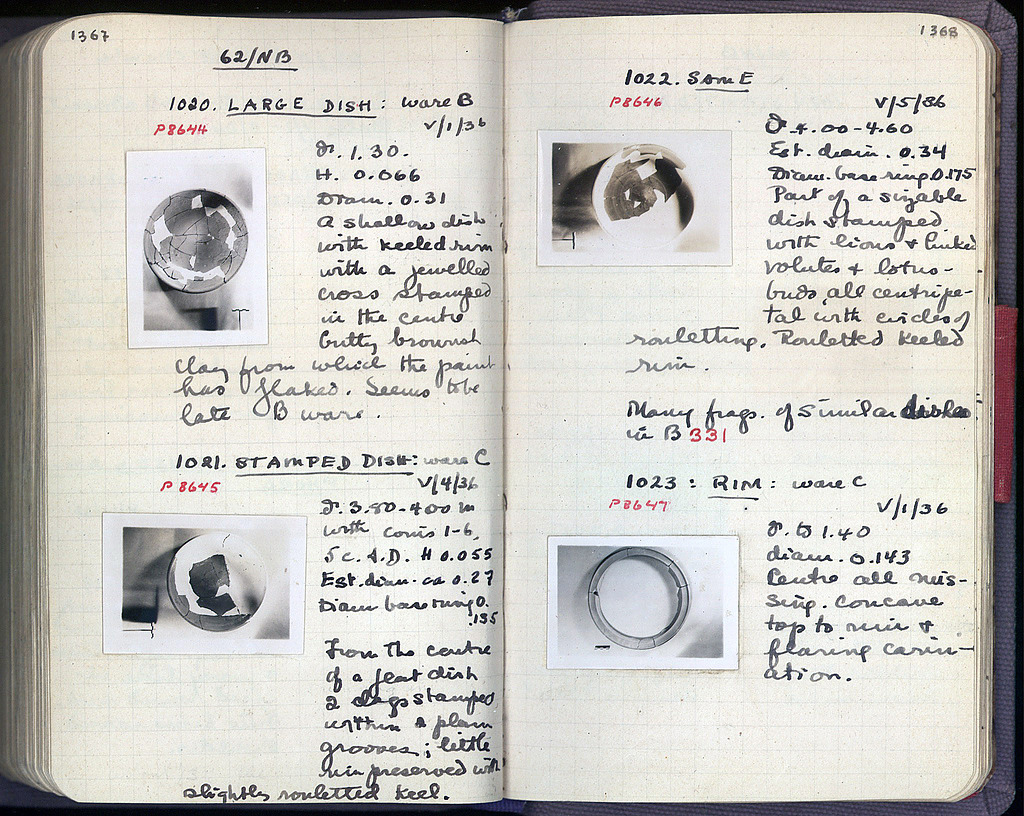 1367
62/NB
1020. LARGE DISH: ware B
P8644
V/1/36
P. 1.30.
H. 0.066
Diam. 0.31
A shallow dish
with keeled rim
with a jewelled
cross stamped
in the centre
gritty brownish
clay from which the paint
has flaked. Seems to be
late B ware.
1021. STAMPED DISH: ware C
P8645
V/4/36
P. 3.80-400 m
with coins 1-6,
5 c. A.D. H 0.055
Est. diam. ca 0.27
Diam base ring 0.
135
From the centre
of a flat dish
2 dogs stamped
within plain
grooves; little
rim preserved with
slightly rouletted keel.
1368
1022. SAME
P8646
V/5/36
P. 4.00-4.60
Est. diam. 0.34
Diam. base ring 0.175
Part of a sizable
dish stamped
with lions + linked
volutes + lotus-
buds, all centripe-
tal with circles of
rouletting. Rouletted keeled
rim.
Many frags. of similar dishes
in B 331
1023: RIM: ware C
P8647
V/1/36
P. to 1.40
diam. 0.143
Centre all mis-
sing. Concave
top to rim +
flaring carin-
ation.